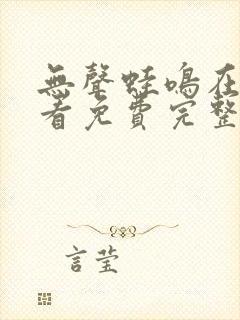 無聲蛙鳴在
看免費完整
言瑩